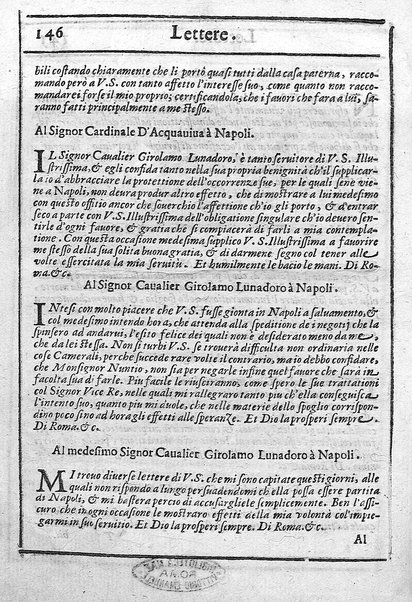 146 Lettere.
bili costando chiaramente che li portò quasi tutti dalla casa paterna, racco-
mando però a V.S. con tanto affetto l'interesse suo, come quanto non racco-
mandarei forse il mio proprio; certificandola, che i favori che fara a lui, sa-
ranno fatti principalmente a me stesso.
Al Signor Cardinale D'Acquauiua à Napoli.
IL Signor Caualier Girolamo Lunadoro, è tanto seruitore di V. S. Illu-
strissima, & egli confida tanto nella sua propria benignità ch'il supplicar-
la d'abbracciare la protettione dell'occorrenze sue, per le quali sene vie-
ne a Napoli, non deura produr altro effetto, che di mostrare a lui medesimo
con questo offitio ancor che souerchio l'affettione ch'io gli porto, & d'entrar
seco a parte con V.S. Illustrissima dell'obligatione singulare ch'io deuero sen-
tirle d'ogni fauore, & gratia che si compiacerà di farli a mia contempla-
tione. Con questa occasione medesima supplico V.S. Illustrissima a fauorire
me stesso della sua solita buona gratia, & di darmene segno col tener alle
volte essercitata la mia seruitù. Et humilmente le bacio le mani. Di Ro-
ma. &c.
Al Signor Caualier Girolamo Lunadoro à Napoli.
INtesi con molto piacere che V.S. fusse gionta in Napoli a saluamento, &
col medesimo intendo hora, che attenda alla speditione de i negotij che la
spinsero ad andarui, l'esito felice dei quali non è desiderato meno da me,
che da lei stessa. Non si turbi V.S. se trouerà difficultà non ordinaria nelle
cose Camerali, perche succede rare volte il contrario, ma io debbo confidare,
che Monsignor Nuntio, non sia per negarle infine quel fauore che sarà in
facoltà sua di farle. Piu facile le riusciranno, come spero le sue trattationi
col Signor Vice Re, nelle quali mi rallegraro tanto piu ch'ella conseguisca
l'intento suo, quanto piu mi duole, che nelle materie dello spoglio corrispon-
dino poco sino ad hora gli effetti alle speranze. Et Dio la prosperi sempre
Di Roma. &c.
Al medesimo Signor Caualier Girolamo Lunadoro à Napoli.
MI trouo diuerse lettere di V.S. che mi sono capitate questi giorni, alle
quali non rispondo a lungo persuadendomi ch'ella possa essere partita
di Napoli, & mi basterà percio di accusargliele semplicemente. Ben l'assi-
curo che in ogni occasione le mostraro effetti della mia volontà col'impie-
garmi in suo seruitio. Et Dio la prosperi sempre. Di Roma. &c.
Al